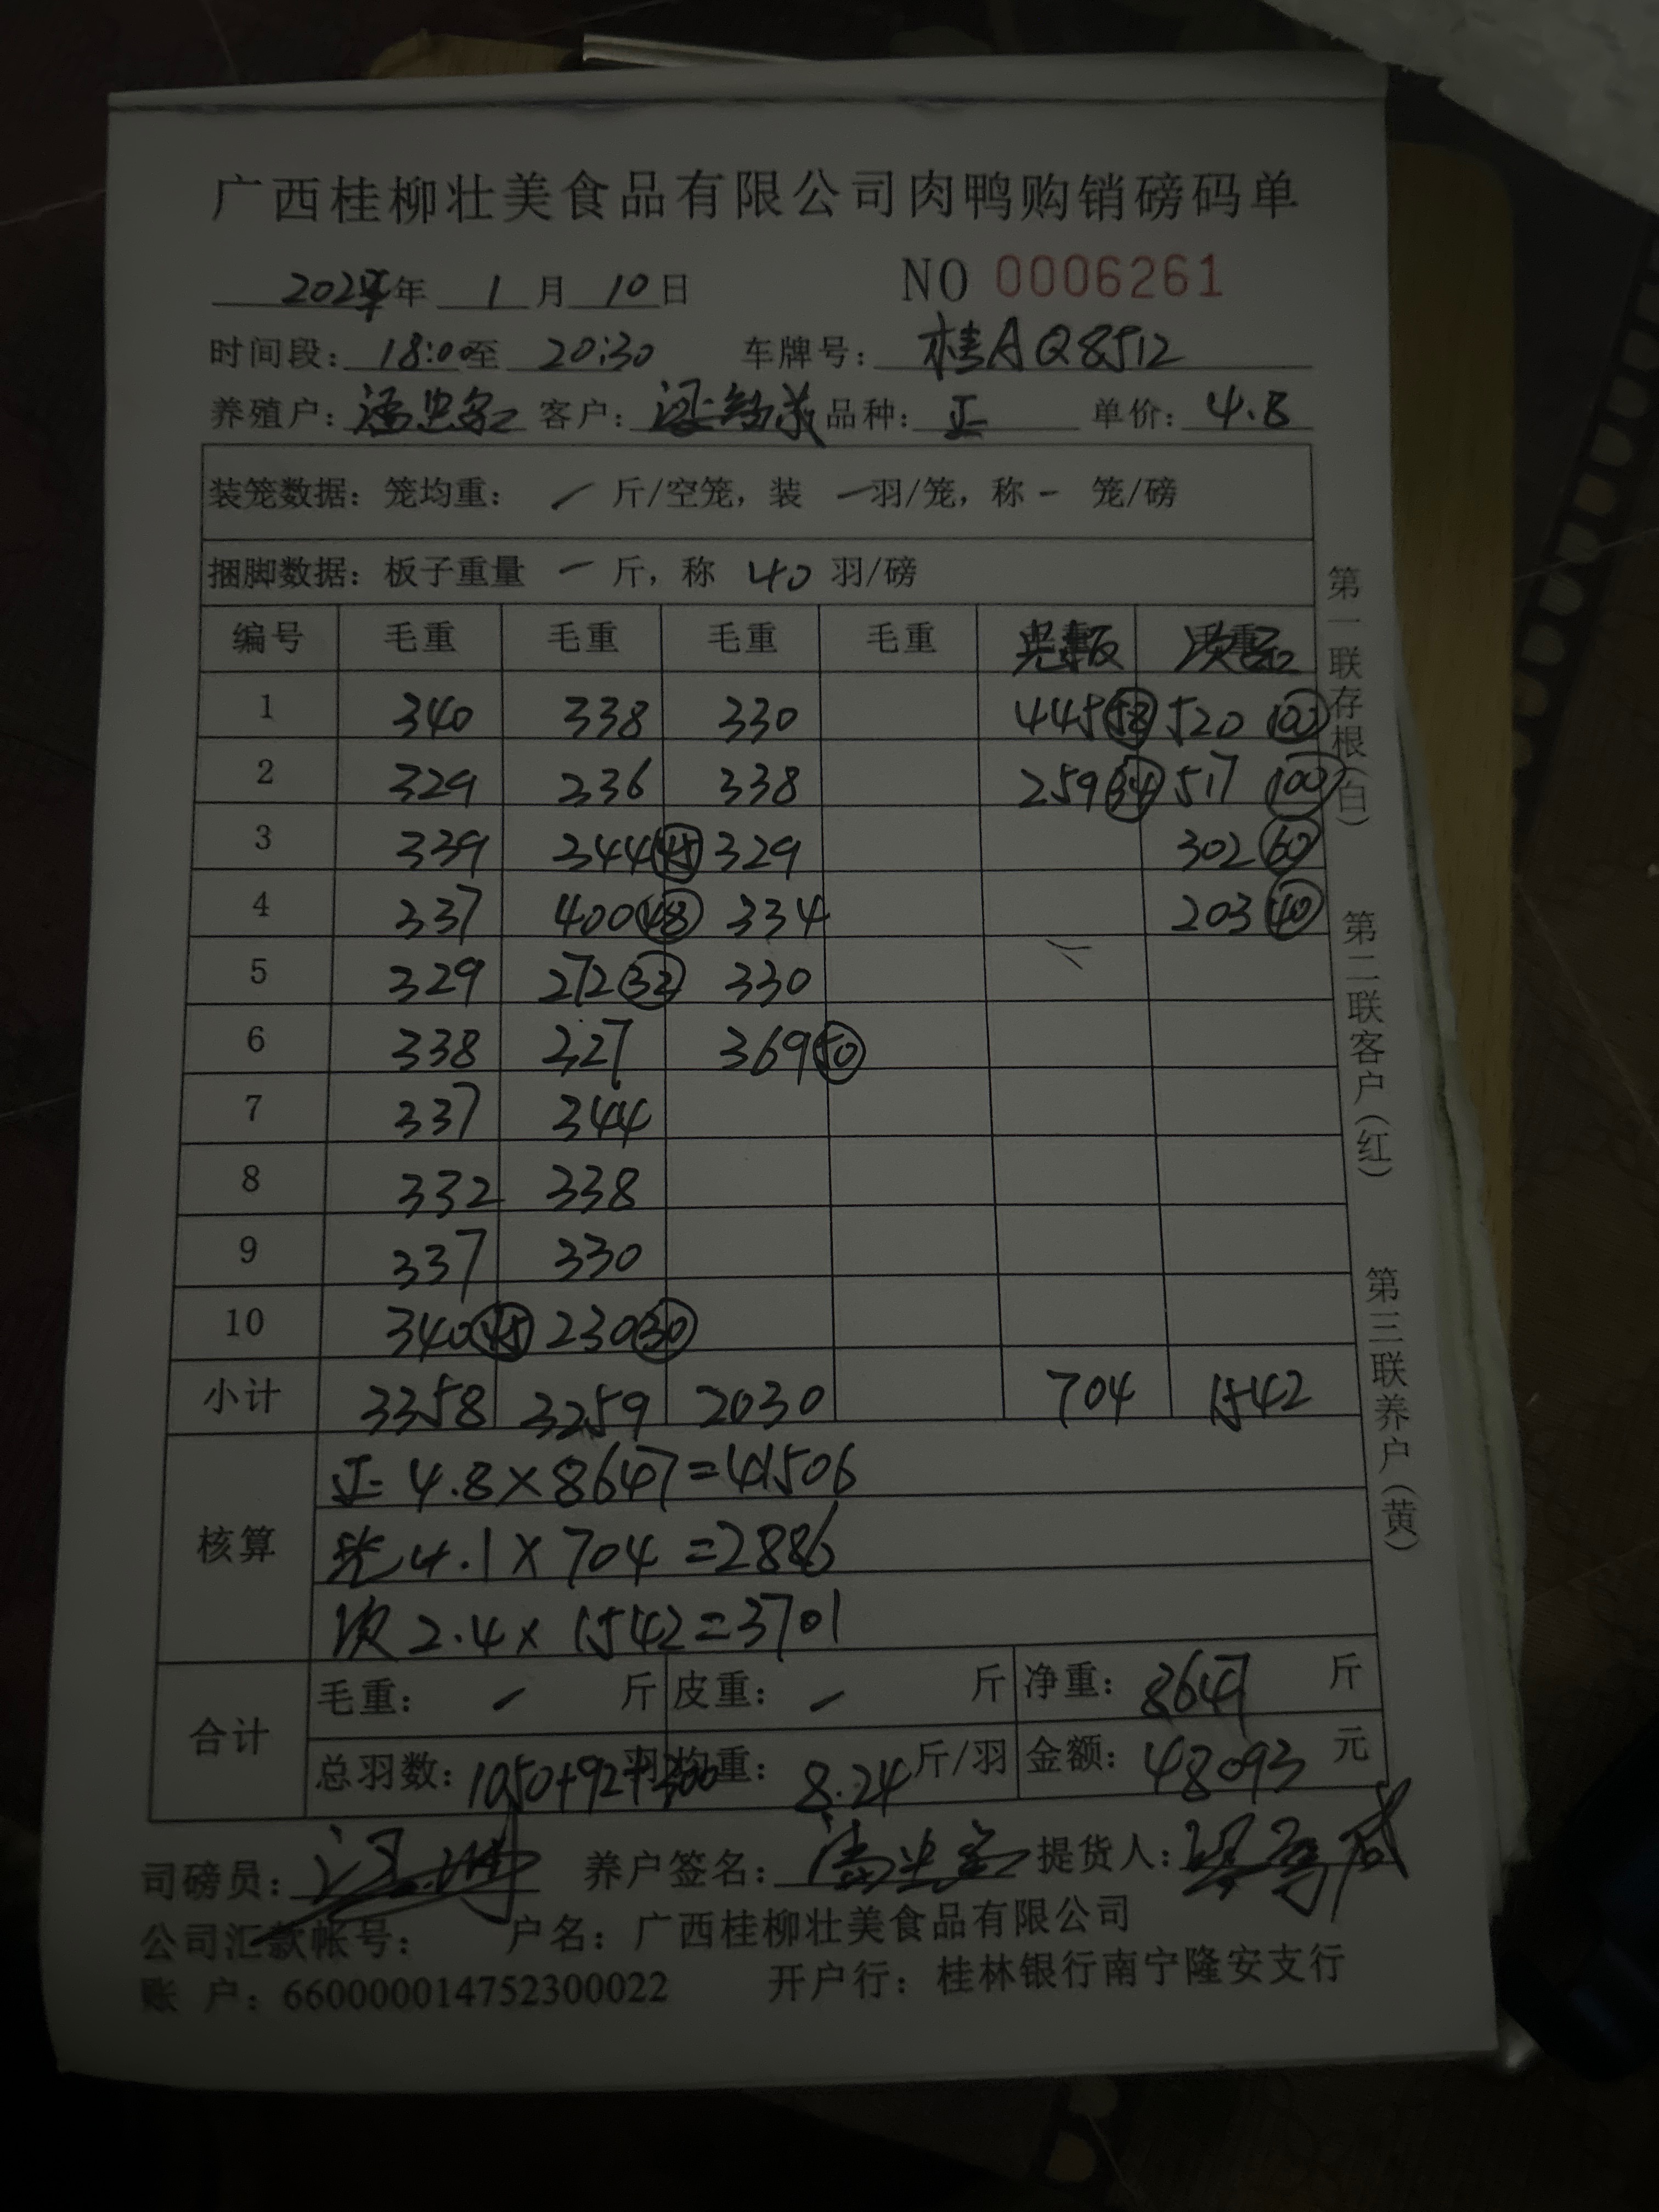 广西桂柳壮美食品有限公司肉鸭购销磅码单
年 1 月 10 日 NO 0006261
时间段: 18:00 至 20:30 车牌号: 桂AQ8512
养殖户: 客户: 品种: 正 单价: 4.8
装笼数据: 笼均重: 斤/空笼, 装 羽/笼, 称 笼/磅
捆脚数据: 板子重量 斤, 称 40 羽/磅
编号 毛重 毛重 毛重 毛重
1 340 338 330 445 58 520 100
2 329 336 338 259 34 517 100
3 339 344 45 329 302 60
4 337 400 48 334 203 40
5 329 272 32 330
6 338 327 369 50
7 337 344
8 332 338
9 337 330
10 340 45 230 30
小计 3358 3259 2030 704 1542
核算 正 4.8×8647=41506
光 4.1×704=2886
次 2.4×1542=3701
合计 毛重: 斤 皮重: 斤 净重: 8647 斤
总羽数: 1050+92+300 羽 均重: 8.24 斤/羽 金额: 48093 元
司磅员: 养户签名: 提货人:
公司汇款帐号: 户名: 广西桂柳壮美食品有限公司
账 户: 660000014752300022 开户行: 桂林银行南宁隆安支行
第一联存根(白)
第二联客户(红)
第三联养户(黄)